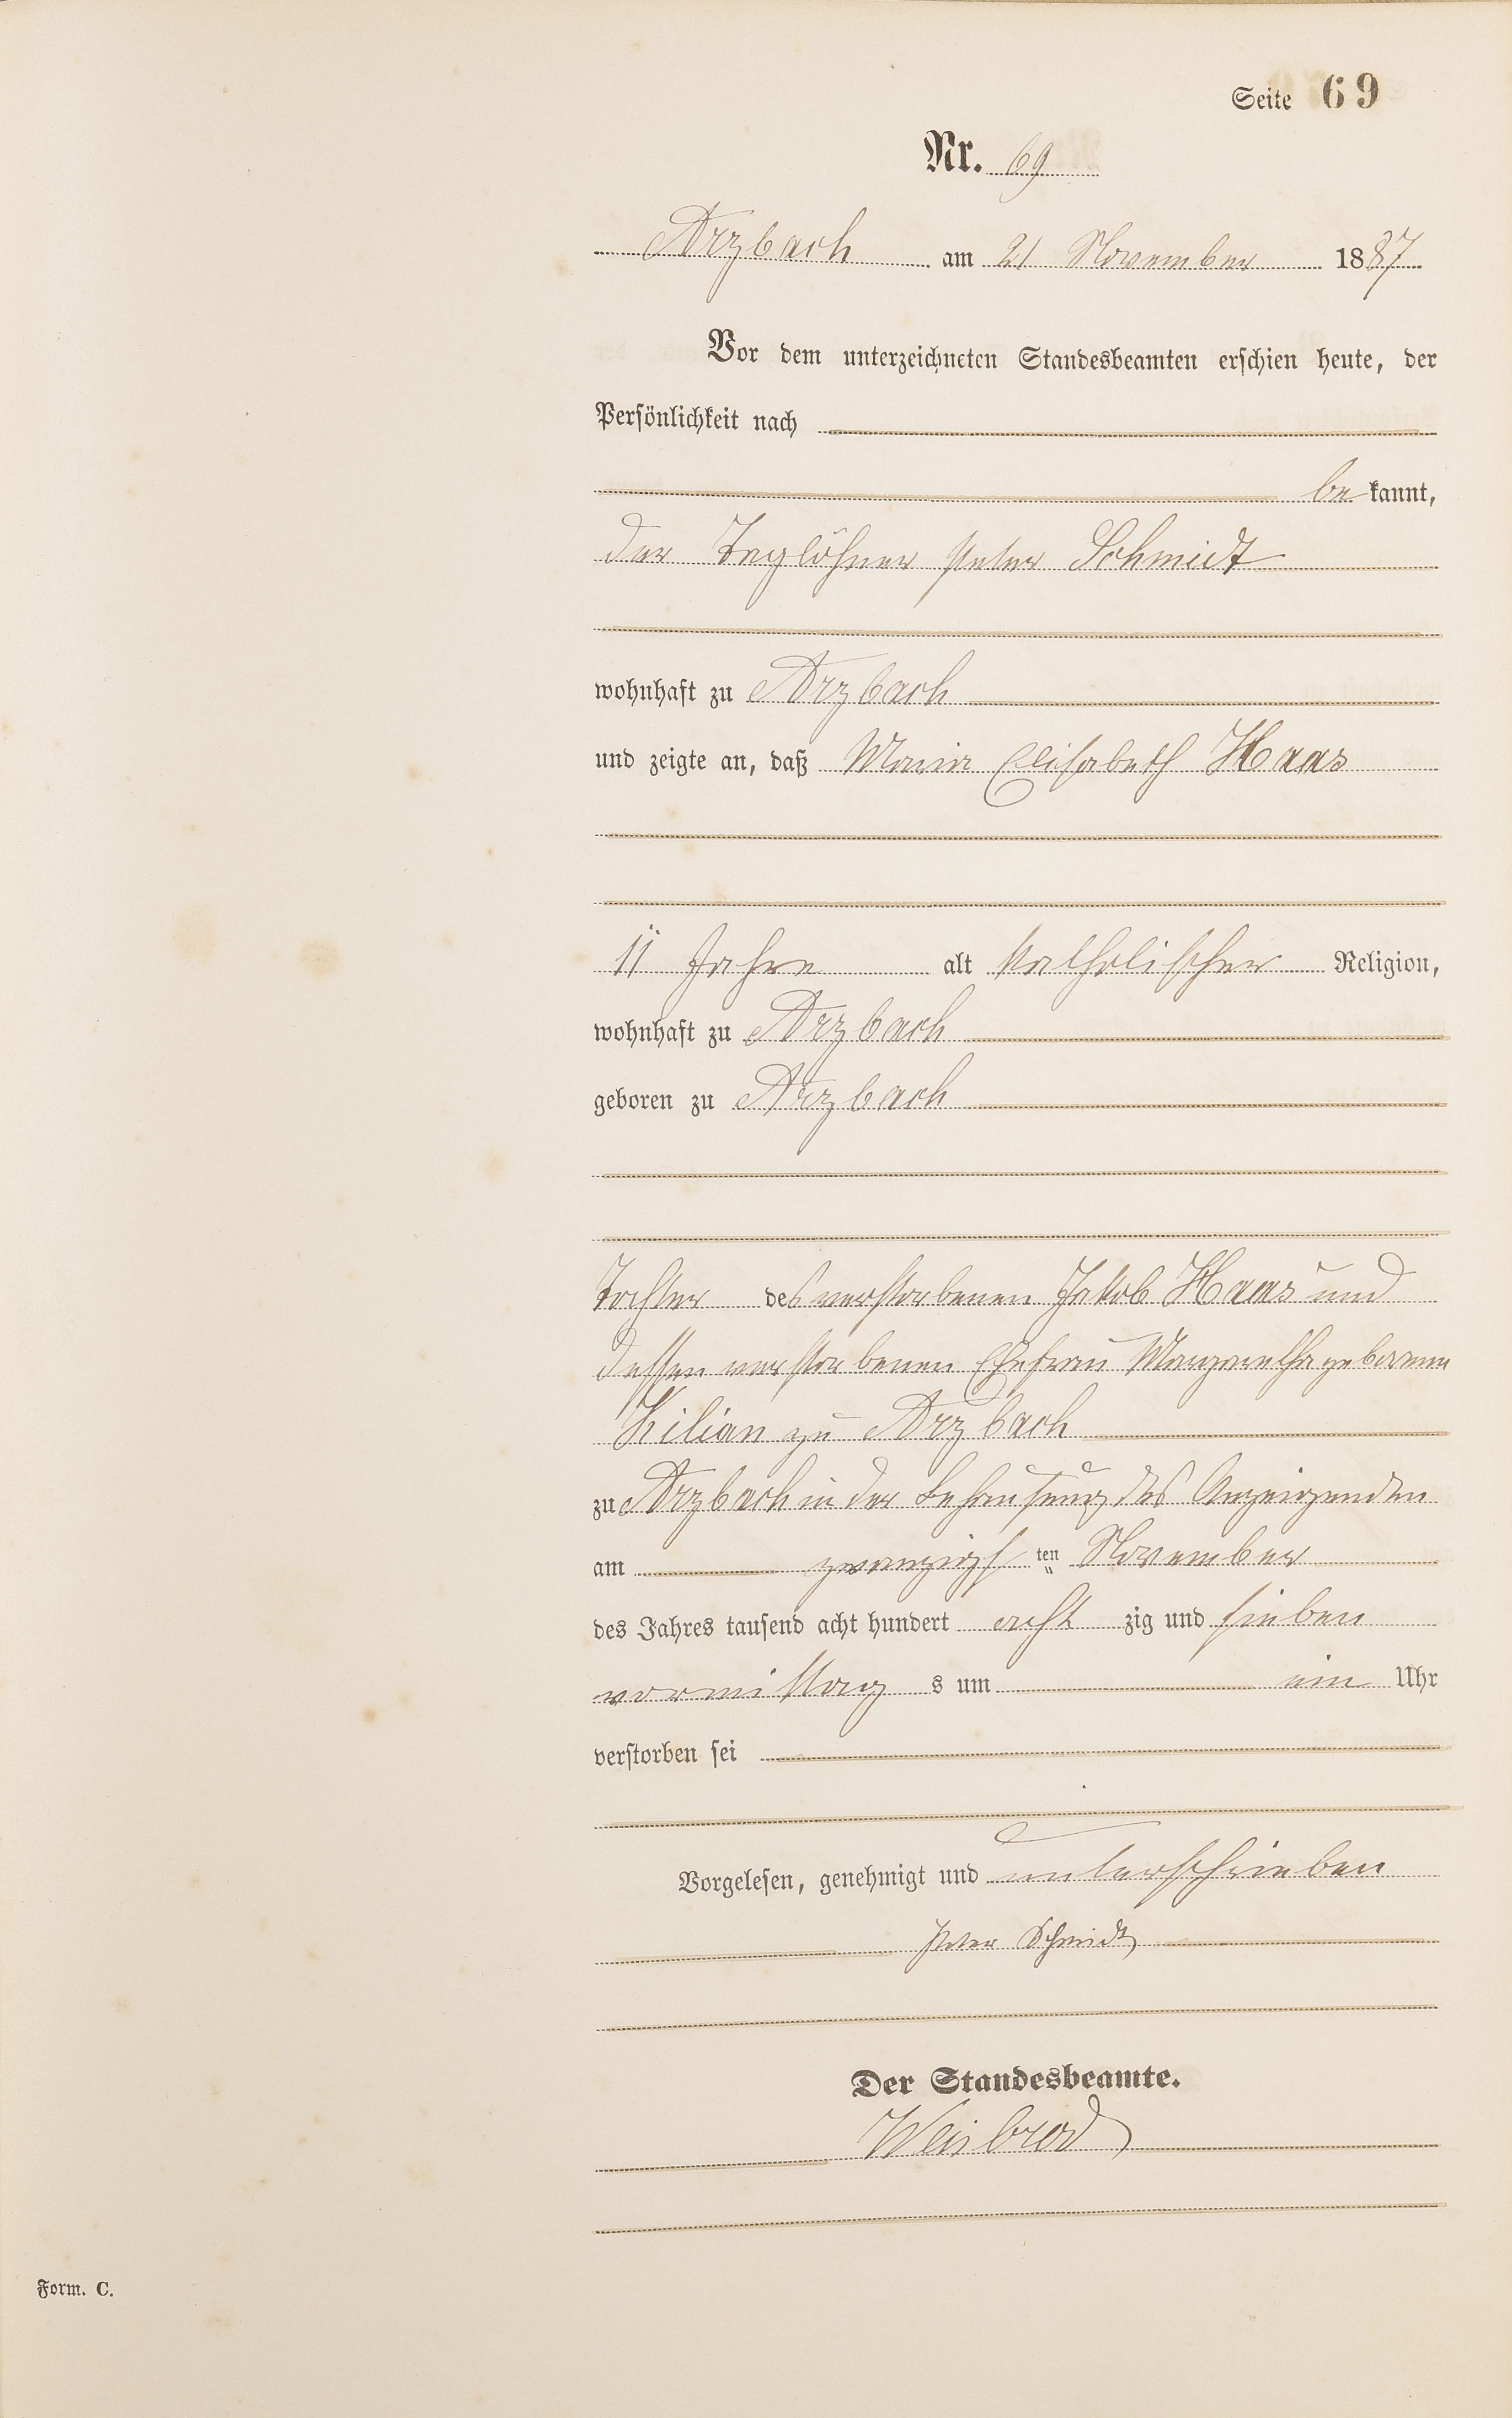 Seite 69
Nr. 69
Arzbach am 21 November 1887
Vor dem unterzeichneten Standesbeamten erschien heute, der
Persönlichkeit nach
be kannt,
der Taglöhner Peter Schmidt
wohnhaft zu Arzbach
und zeigte an, daß Maria Elisabeth Haas
11 Jahre alt katholischer Religion,
wohnhaft zu Arzbach
geboren zu Arzbach
Tochter des verstorbenen Jakob Haas und
dessen verstorbenen Ehefrau Margaretha geborenen
Kilian zu Arzbach
zu Arzbach in der Behausung des Anzeigenden
am zwanzigs ten November
des Jahres tausend acht hundert acht zig und sieben
vormittag s um ein Uhr
verstorben sei
Vorgelesen, genehmigt und unterschrieben
Peter Schmidt
Der Standesbeamte.
Weisbrod
Form. C.